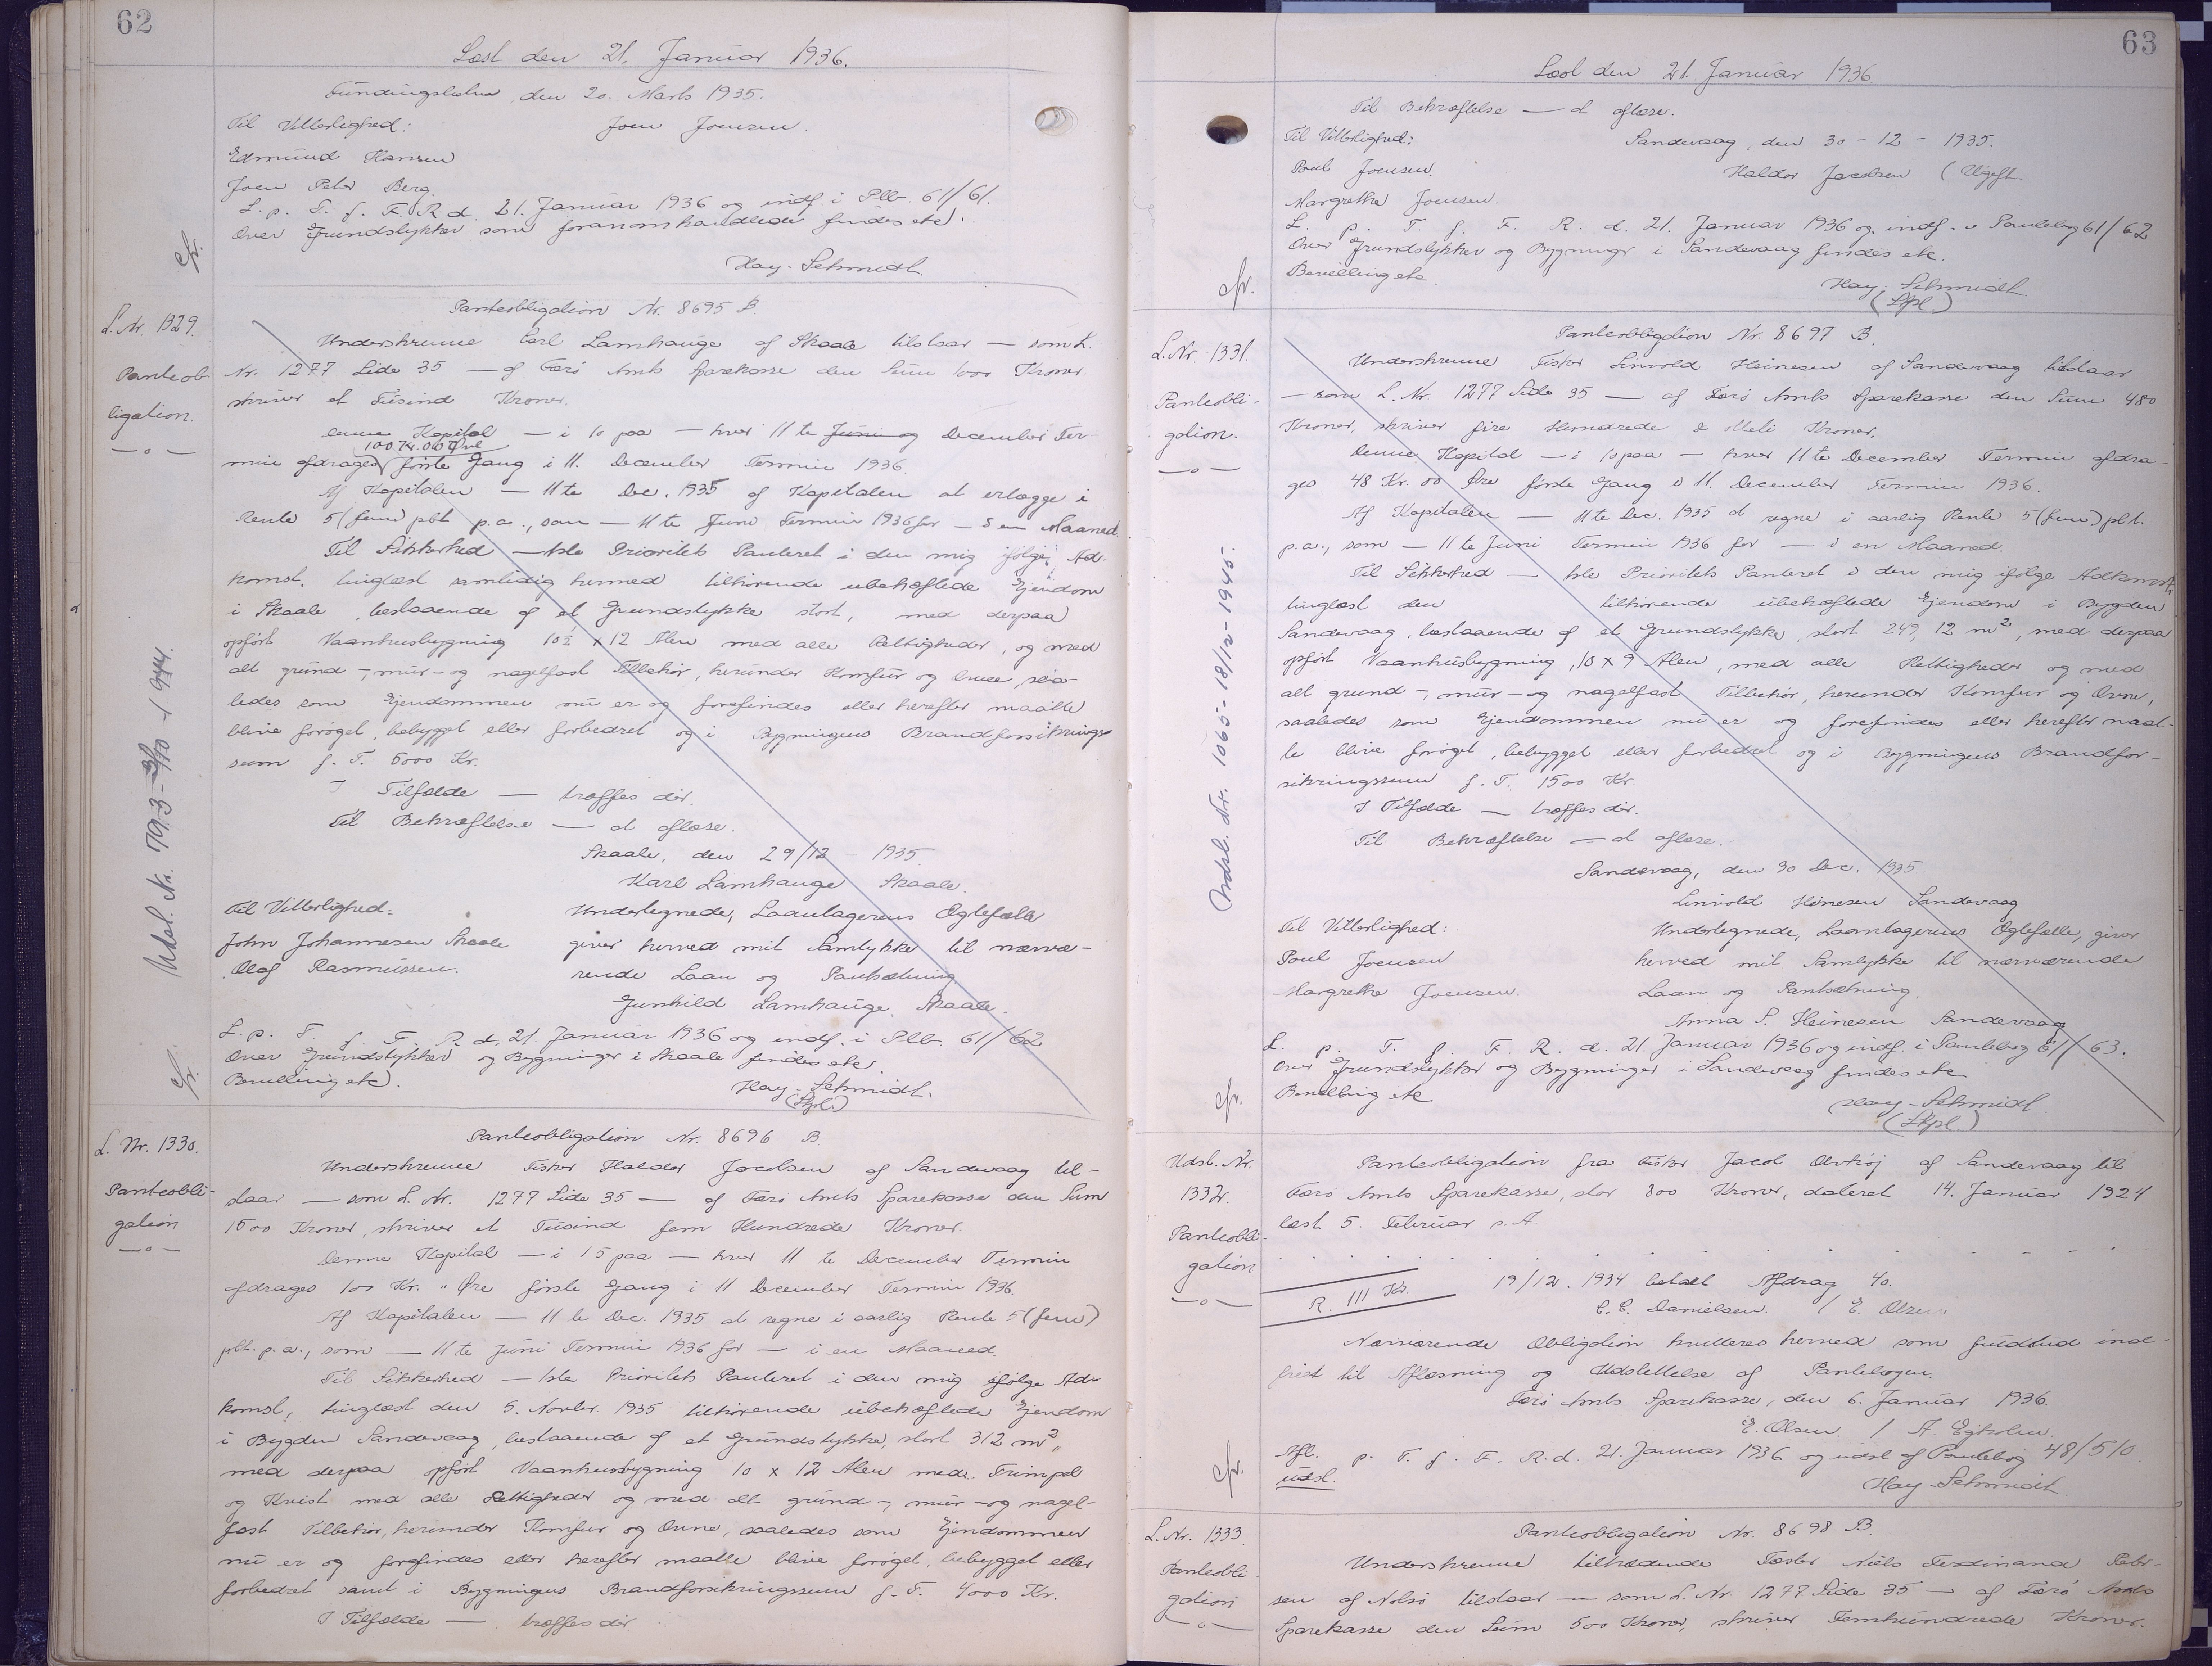 62
Læst den 21. Januar 1936.
den 20. Marts 1935.
Til Vitterlighed: Joen Joensen.
Edmund Hansen
Joen Peter Berg.
L. p. T. f. F. R. d. 21. Januar 1936 og indf. i Pb. 61/61.
Over Grundstykker som foranomhandlede findes etc.
Cfr.
Hay-Schmidt
L. Nr. 1329.
Panteob-
ligation.
Panteobligation Nr. 8695 B.
Underskrevne Carl Lamhauge af Skaale tilstaar — som L.
Nr. 1277 Side 35 — af Færø Amts Sparekasse den Sum 1000 Kroner
skriver et Tusind Kroner.
Denne Kapital — i 10 paa — hver 11te Juni og December Ter-
100 Kr. 00 Øre
min afdrages første Gang i 11. December Termin 1936.
Af Kapitalen — 11te Dec. 1935 af Kapitalen at erlægge i
Rente 5 (fem) pCt. p.a., som — 11te Juni Termin 1936 for — i en Maaned
Til Sikkerhed — 1ste Prioritets Panteret i den mig ifølge Ad-
komst, tinglæst samtidig hermed tilhørende ubehæftede Ejendom
i Skaale, bestaaende af et Grundstykke stort, med derpaa
opført Vaanhusbygning 10½ x 12 Alen med alle Rettigheder, og med
alt grund-, mur- og nagelfast Tilbehør, herunder Komfur og Ovne, saa-
ledes som Ejendommen nu er og forefindes eller herefter maatte
blive forøget, bebygget eller forbedret og i Bygningens Brandforsikrings-
sum f. T. 5000 Kr.
I Tilfælde — træffes dør.
Til Bekræftelse — at aflæse.
Skaale, den 29/12 - 1935.
Karl Lamhauge Skaale.
Til Vitterlighed: Undertegnede, Laantagerens Ægtefælle
John Johannesen Skaale giver herved mit Samtykke til nærvæ-
Olaf Rasmussen. rende Laan og Pantsætning
Gunhild Lamhauge Skaale.
L. p. T. f. F. R. d. 21. Januar 1936 og indf. i Pb. 61/62
Over Grundstykker og Bygninger i Skaale findes etc.
Bevilling etc.
Cfr.
Hay-Schmidt.
(Stpl.)
Udsl. Nr. 793 - 3/10 - 1944.
L. Nr. 1330.
Panteobli-
gation
Panteobligation Nr. 8696 B.
Underskrevne Fisker Haldor Jacobsen af Sandevaag til-
staar — som L. Nr. 1277 Side 35 — af Færø Amts Sparekasse den Sum
1500 Kroner, skriver et Tusind fem Hundrede Kroner.
Denne Kapital — i 15 paa — hver 11 te December Termin
afdrages 100 Kr. " Øre første Gang i 11 December Termin 1936.
Af Kapitalen — 11 te Dec. 1935 at regne i aarlig Rente 5 (fem)
pCt. p.a., som — 11 te Juni Termin 1936 for — i en Maaned.
Til Sikkerhed — 1ste Prioritets Panteret i den mig ifølge Ad-
komst, tinglæst den 5. Novbr. 1935 tilhørende ubehæftede Ejendom
i Bygden Sandevaag, bestaaende af et Grundstykke, stort 312 m²,
med derpaa opført Vaanhusbygning 10 x 12 Alen med Frimpel
og Kvist med alle Rettigheder og med alt grund-, mur- og nagel-
fast Tilbehør, herunder Komfur og Ovne, saaledes som Ejendommen
nu er og forefindes eller herefter maatte blive forøget, bebygget eller
forbedret samt i Bygningens Brandforsikringssum f. T. 4000 Kr.
I Tilfælde — træffes dør
63
Læst den 21. Januar 1936
Til Bekræftelse — at aflæse.
Til Vitterlighed: Sandevaag, den 30 - 12 - 1935.
Poul Joensen. Haldor Jacobsen (Ugift
Margretha Joensen.
L. p. T. f. F. R. d. 21. Januar 1936 og indf. i Pantebog 61/62
Over Grundstykker og Bygninger i Sandevaag findes etc.
Bevilling etc.
Cfr.
Hay-Schmidt
(Stpl.)
L. Nr. 1331.
Panteobli-
gation.
Panteobligation Nr. 8697 B.
Underskrevne Fisker Linvold Heinesen af Sandevaag tilstaar
— som L. Nr. 1277 Side 35 — af Færø Amts Sparekasse den Sum 480
Kroner, skriver fire Hundrede & otteti Kroner.
Denne Kapital — i 10 paa — hver 11te December Termin afdra-
ges 48 Kr. 00 Øre første Gang i 11. December Termin 1936.
Af Kapitalen — 11te Dec. 1935 at regne i aarlig Rente 5 (fem) pCt.
p.a., som — 11 te Juni Termin 1936 for — i en Maaned.
Til Sikkerhed — 1ste Prioritets Panteret i den mig ifølge Adkomst,
tinglæst den tilhørende ubehæftede Ejendom i Bygden
Sandevaag, bestaaende af et Grundstykke, stort 249,12 m², med derpaa
opført Vaanhusbygning, 10 x 9 Alen, med alle Rettigheder og med
alt grund-, mur- og nagelfast Tilbehør, herunder Komfur og Ovne,
saaledes som Ejendommen nu er og forefindes eller herefter maat-
te blive forøget, bebygget eller forbedret og i Bygningens Brandfor-
sikringssum f. T. 1500 Kr.
I Tilfælde — træffes dør.
Til Bekræftelse — at aflæse.
Sandevaag, den 30 Dec. 1935
Linvold Heinesen Sandevaag
Til Vitterlighed: Undertegnede, Laantagerens Ægtefælle, giver
Poul Joensen herved mit Samtykke til nærværende
Margretha Joensen. Laan og Pantsætning.
Anna S. Heinesen Sandevaag
L. p. T. f. F. R. d. 21. Januar 1936 og indf. i Pantebog 61/63.
Over Grundstykker og Bygninger i Sandevaag findes etc
Bevilling etc
Cfr.
Hay-Schmidt.
(Stpl.)
Udsl. Nr. 1065 - 18/12 - 1945.
Udsl. Nr.
1332.
Panteobli-
gation
Panteobligation fra Fisker Jacob af Sandevaag til
Færø Amts Sparekasse, stor 800 Kroner, dateret 14. Januar 1924
læst 5. Februar s. A.
R. III Kr.
19/12. 1934 betalt Afdrag 40.
C. C. Danielsen / E. Olsen
Nærværende Obligation kvitteres herved som fuldtud ind-
friet til Aflæsning og Udslettelse af Pantebogen.
Færø Amts Sparekasse, den 6. Januar 1936.
E. Olsen / A. Egholm.
Afl. p. T. f. F. R. d. 21. Januar 1936 og udsl. af Pantebog 48/510.
udsl.
Cfr.
Hay-Schmidt.
L. Nr. 1333.
Panteobli-
gation
Panteobligation Nr. 8698 B.
Underskrevne tiltrædende Fæster Niels Ferdinand Peter-
sen af Nolsø tilstaar — som L. Nr. 1277 Side 35 — af Færø Amts
Sparekasse den Sum 500 Kroner, skriver Femhundrede Kroner.